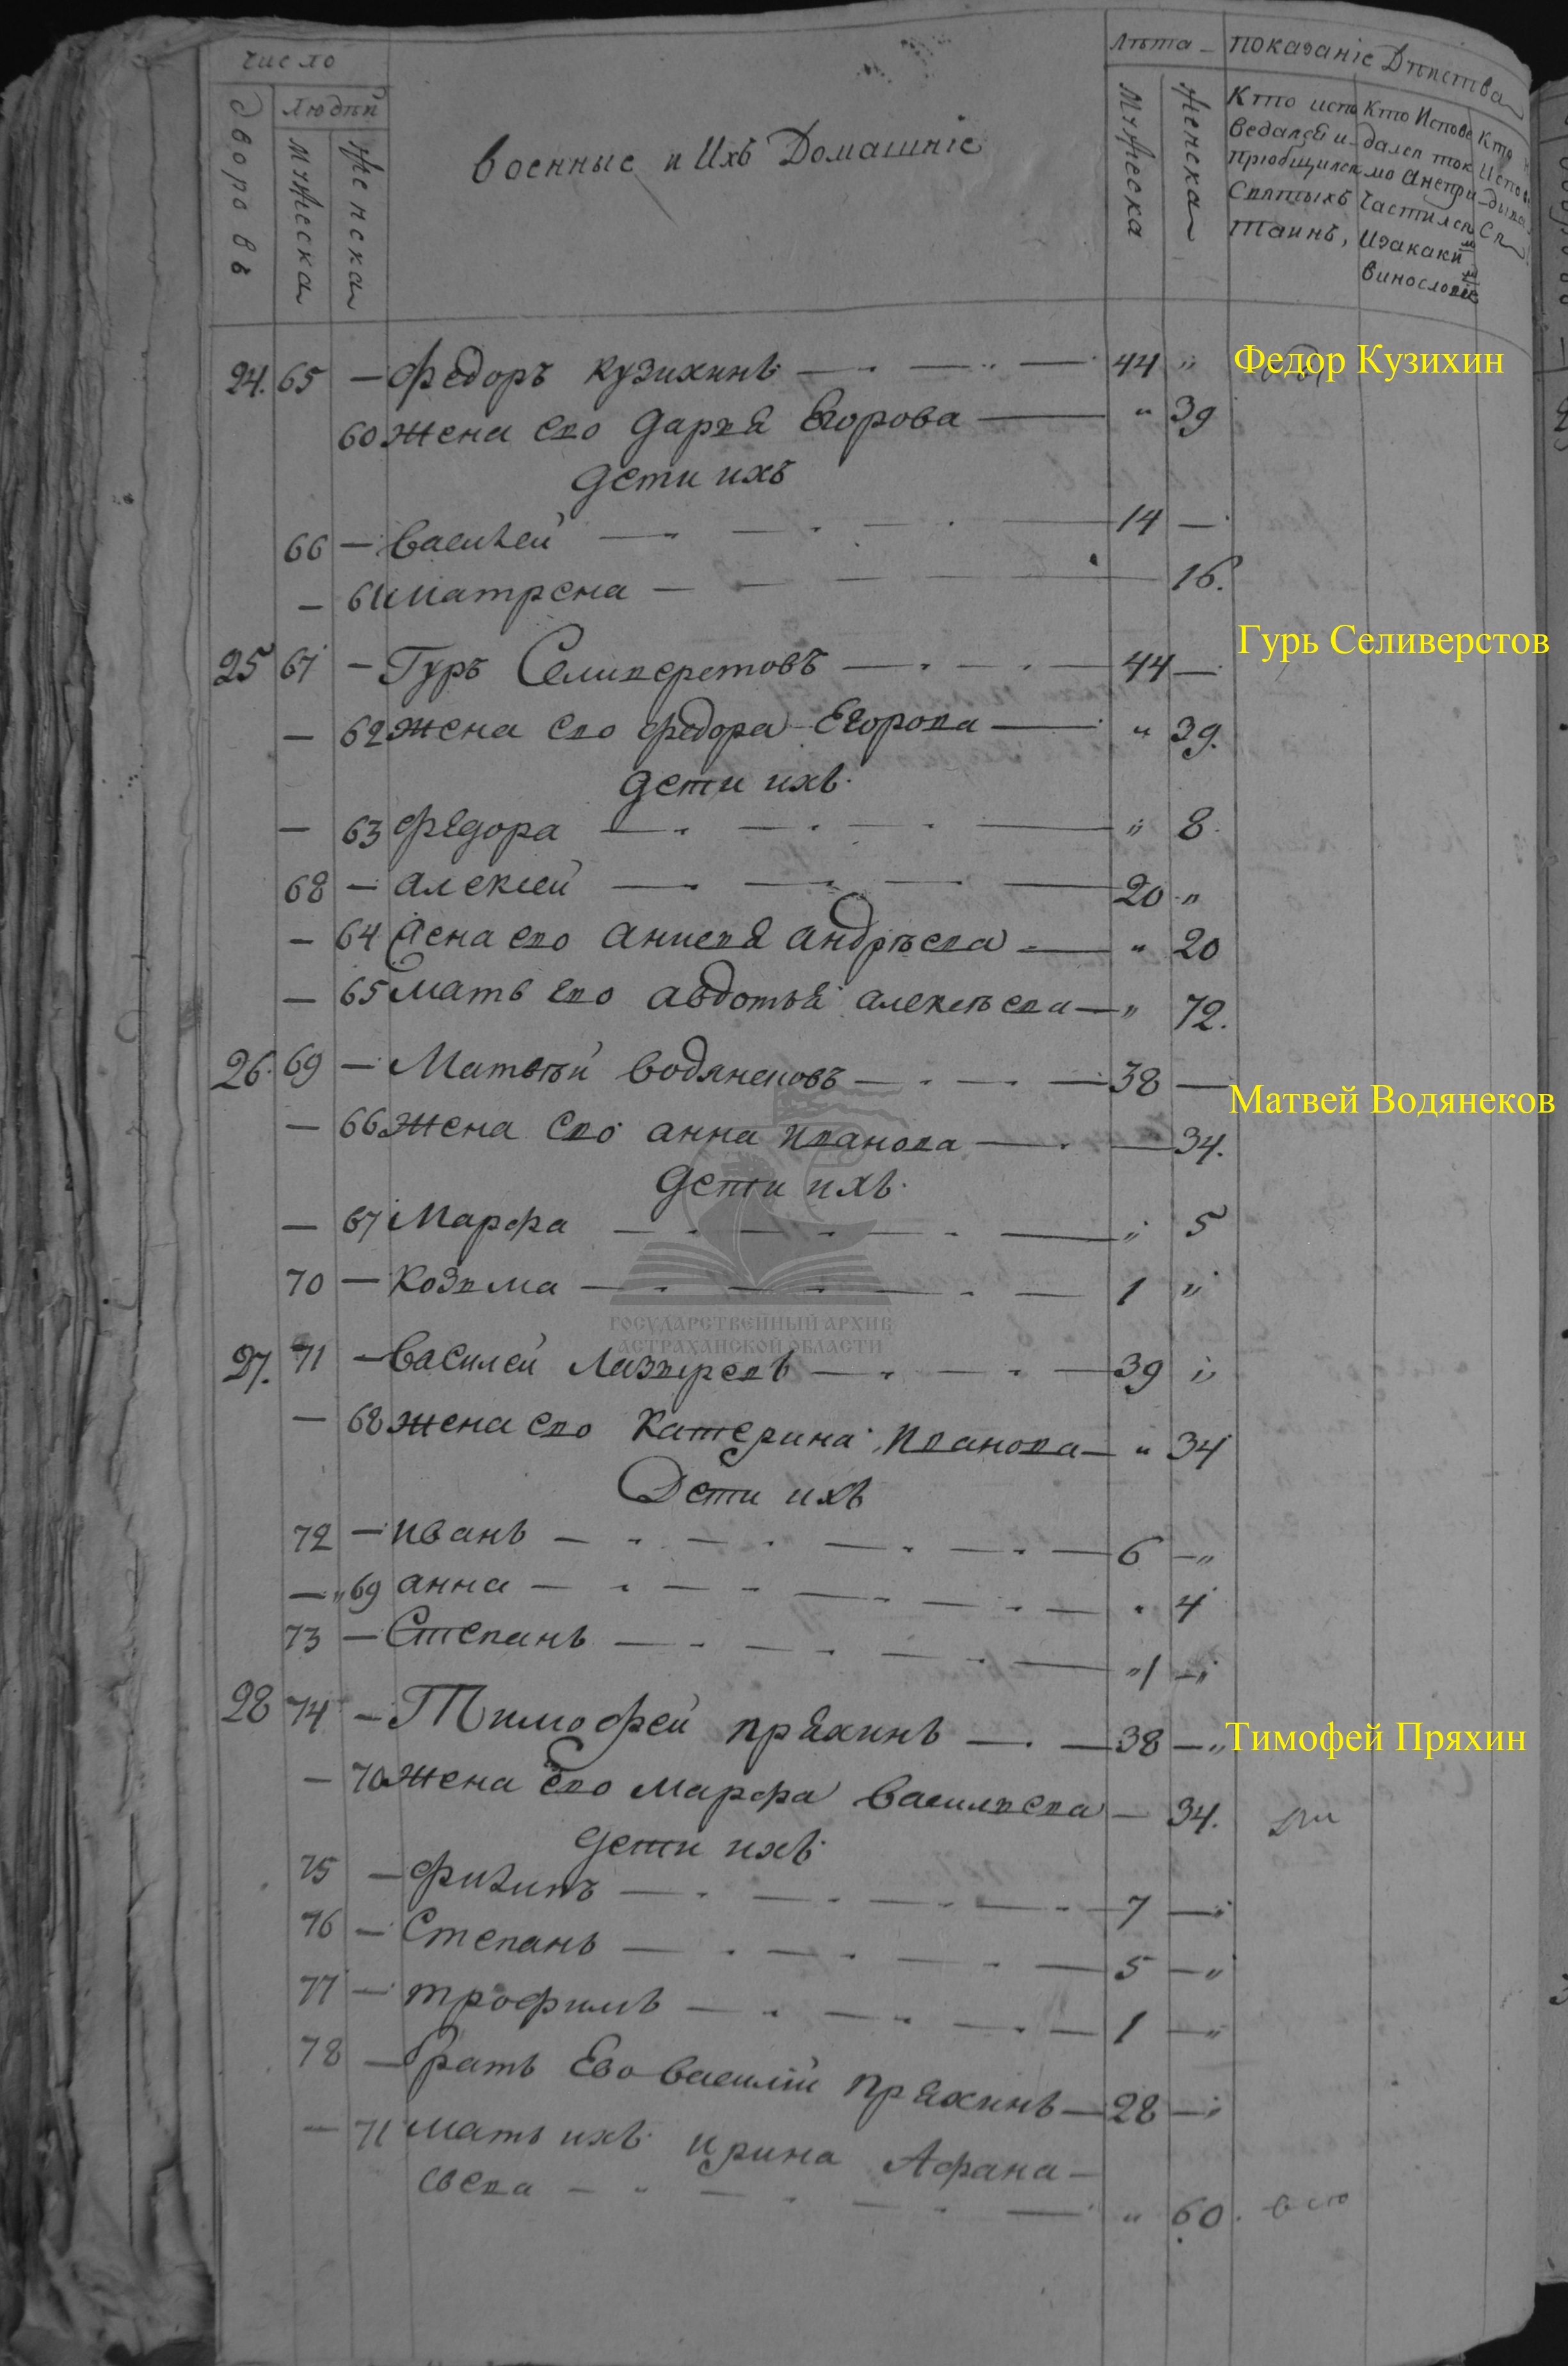 число
людѣй
дворовъ
мужеска
женска
военные и Ихъ Домашніе
лѣта
мужеска
женска
показаніе Дѣиства
Кто испо
ведался и
приобщился
Святыхъ
таинъ,
Кто Испове
дался ток
мо анепри
частился
Изакаки
винословіе
Кто
Испо
24. 65 — Федоръ кузихинъ — 44 "
Федор Кузихин
60 жена ево дарья Егорова — " 39
дети ихъ
66 — василей — 14 —
— 61 матрена — 16.
25 67 — Гуръ Селиверстовъ — 44 —
Гурь Селиверстов
— 62 жена ево федора Егорова — " 39.
дети ихъ
— 63 федора — " 8
68 — алексей — 20 "
— 64 жена ево анисья андрѣева — " 20
— 65 мать ево авдотья алексѣева — " 72.
26. 69 — Матвѣй водянековъ — 38 —
Матвей Водянеков
— 66 жена ево анна иванова — 34.
дети ихъ
— 67 Марфа — " 5
70 — козьма — 1 "
ГОСУДАРСТВЕННЫЙ АРХИВ
АСТРАХАНСКОЙ ОБЛАСТИ
27. 71 — василей Лазаревъ — 39 "
— 68 жена ево катерина иванова — " 34
Дети ихъ
72 — иванъ — 6 — "
— " 69 анна — 4
73 — Степанъ — " 1 — "
28 74 — Тимофей пряхинъ — 38 — "
Тимофей Пряхин
— 70 жена Ево марфа васильева — 34.
дети ихъ
75 — филипъ — 7 — "
76 — Степанъ — 5 — "
77 — трофимъ — 1 — "
78 — братъ Ево василій пряхинъ — 28 — "
— 71 мать ихъ ирина Афана-
сьева — " 60.